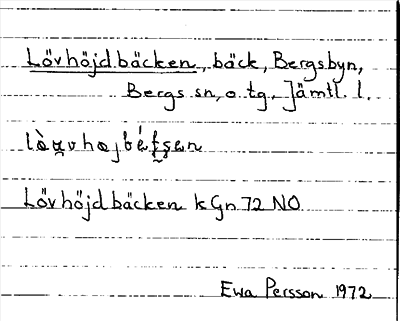 Lövhöjdbäcken, bäck, Bergsbyn,
Bergs sn, o. tg., Jämtl. l.
Lövhöjdbäcken kGn 72 NO
Ewa Persson 1972